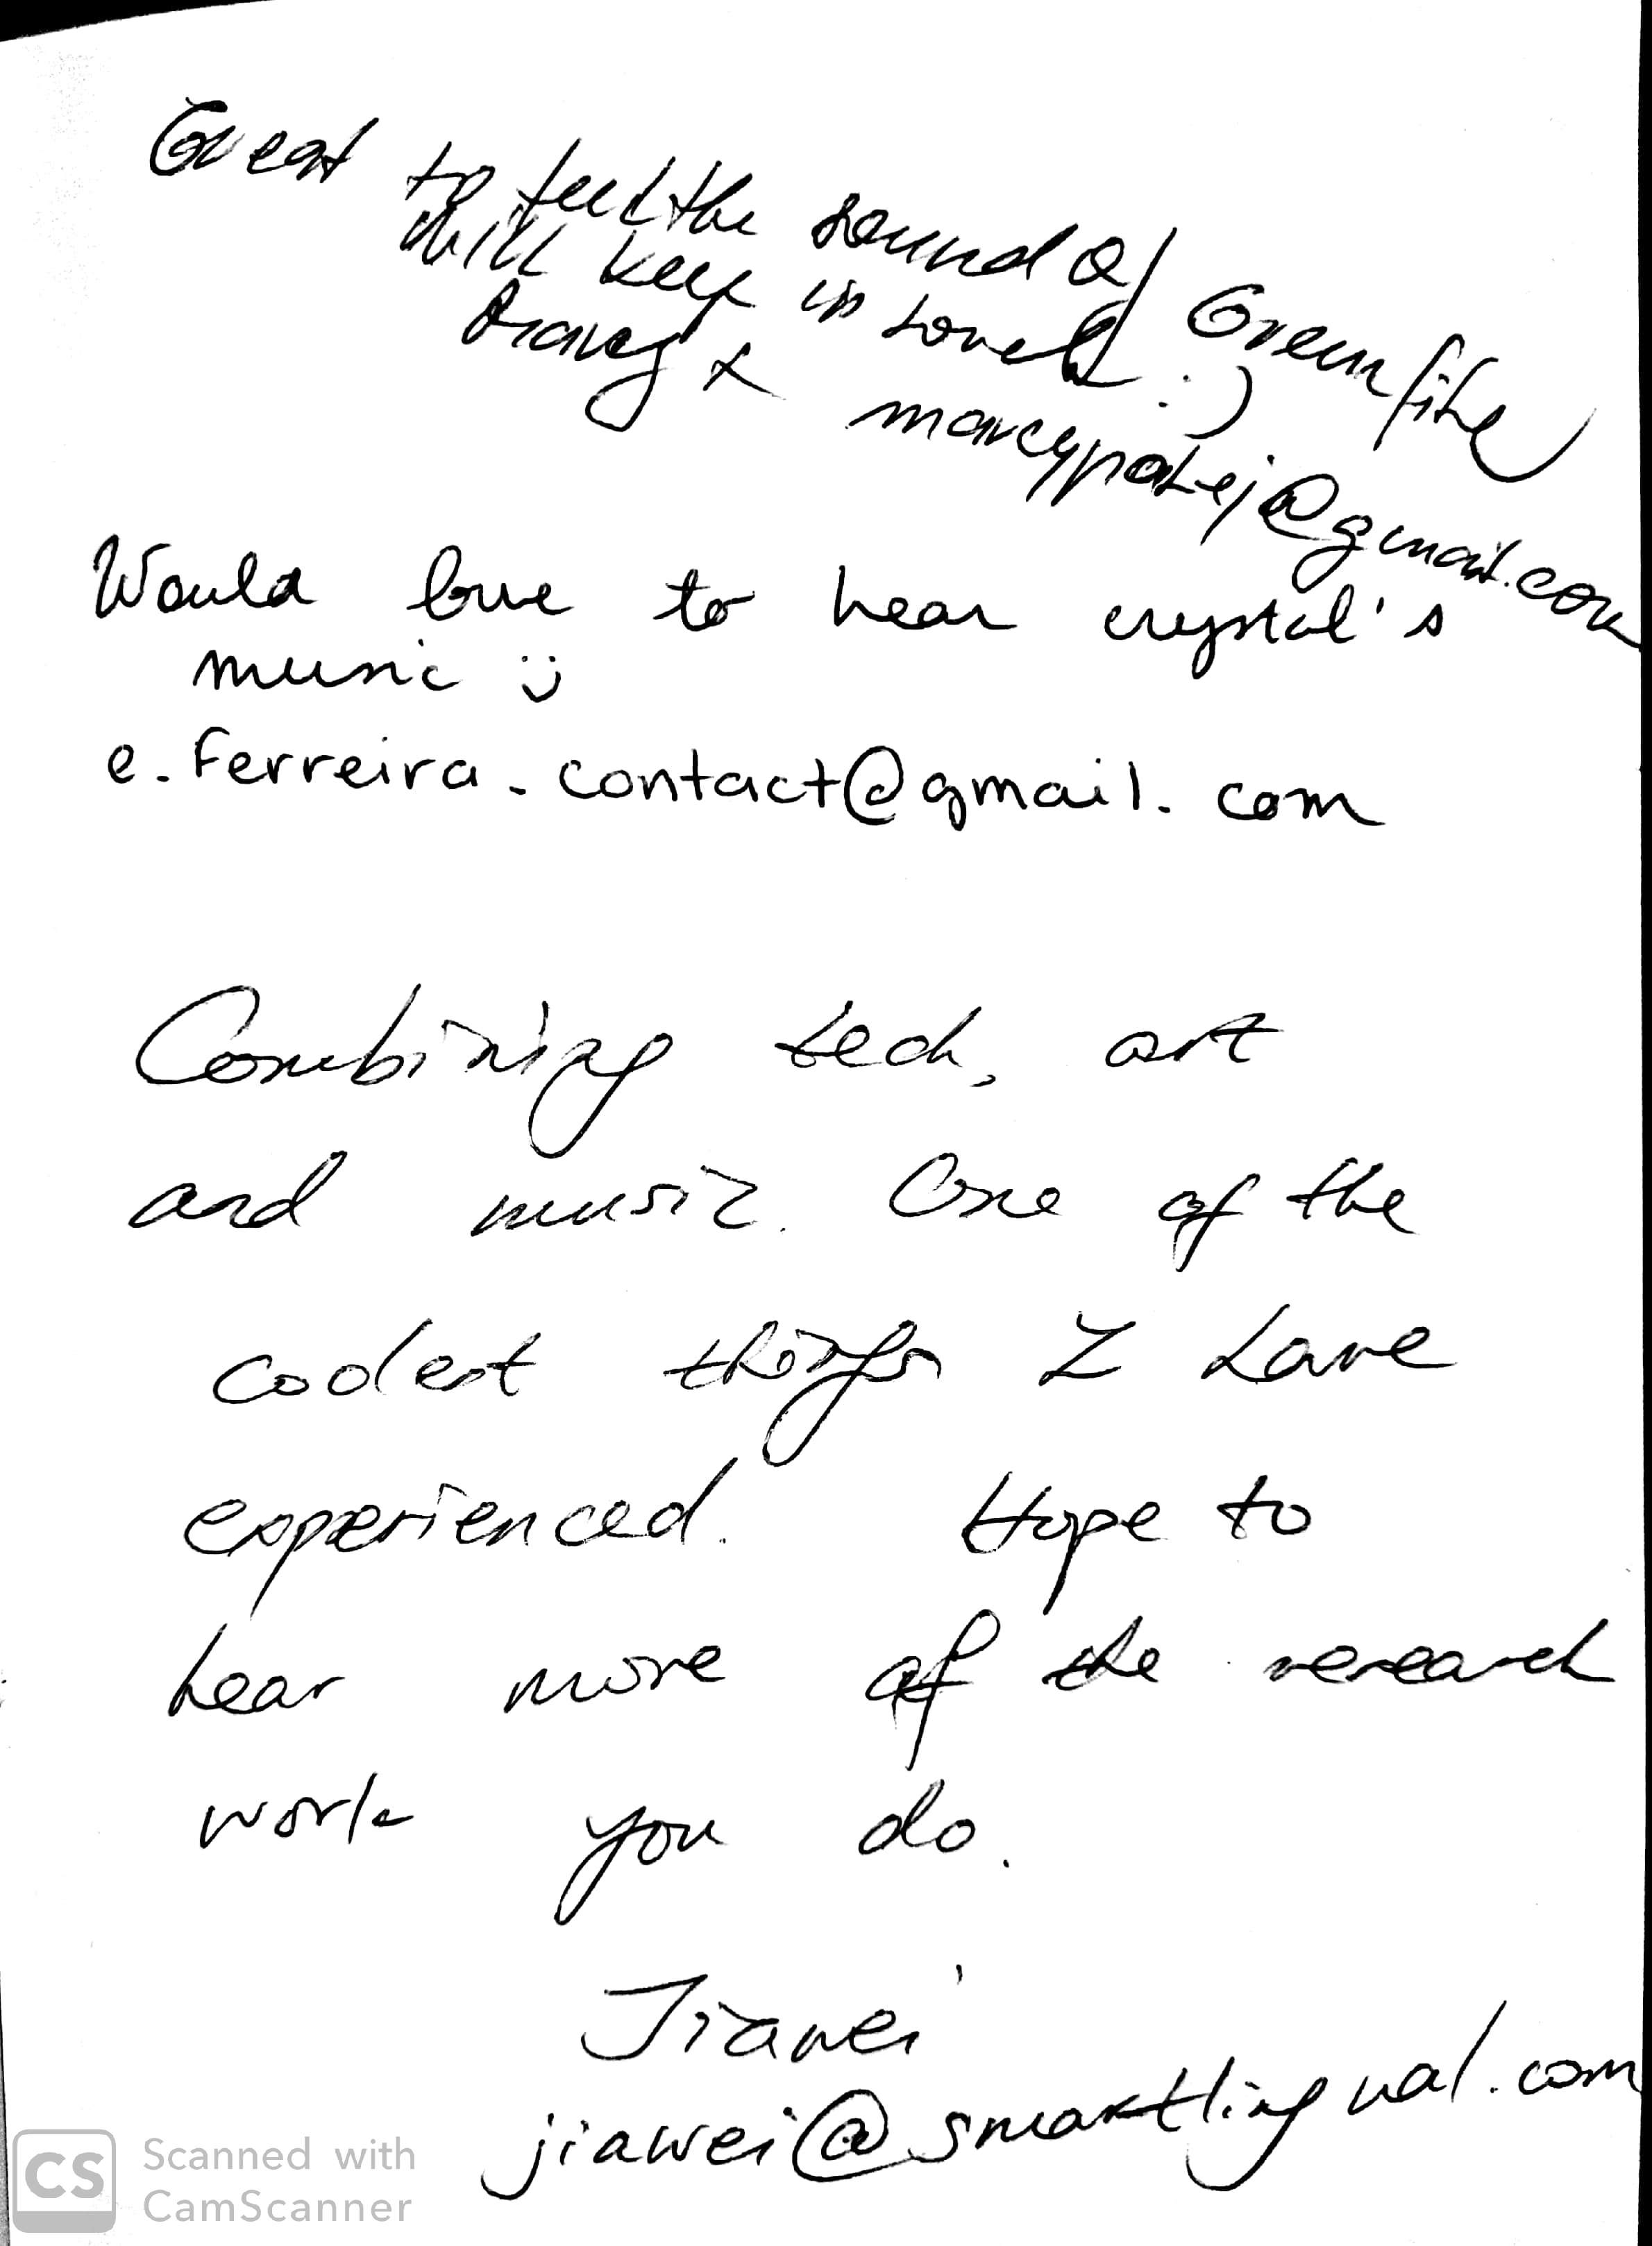 Great to feel the sound of Greenfire
will keep in touch :)
x
@gmail.com
Would love to hear crystal's
music :)
e.ferreira.contact@gmail.com
Combining tech, art
and music. One of the
coolest things I have
experienced. Hope to
hear more of the research
work you do.
Jiawei
jiawei@smartlingual.com
CS
Scanned with
CamScanner